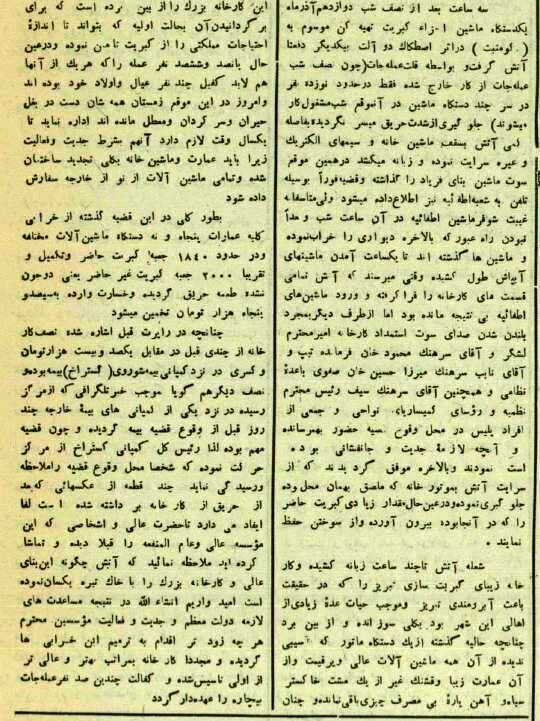 سه ساعت بعد از نصف شب دوازدهم آذرماه
یکدستگاه ماشین اجزاء کبریت تهیه کن موسوم به
( کومنیت ) در اثر اصطکاك دو آلت بیکدیگر دفعتا
آتش گرفت و بواسطه قلت عمله جات (چون نصف شب
عمله جات از کار خارج شده فقط در حدود نوزده نفر
در سر چند دستگاه ماشین در آنموقع شب مشغول کار
میشوند) جلو گیری از شدت حریق میسر نگردیده بفاصله
کمی آتش بسقف ماشین خانه و سیمهای الکتریك
و غیره سرایت نموده و زبانه میکشد در همین موقع
سوت ماشین بنای فریاد را گذاشته و قضیه فوراً بوسیله
تلفن به شعبه اطفائیه نیز اطلاع داده میشود ولی متاسفانه
غیبت شوفر ماشین اطفائیه در آن ساعت شب و بعداً
نبودن راه عبور که بالاخره دیواری را خراب نموده
و ماشین ها گذشته اند تا یکساعت آمدن ماشینهای
آبپاش طول کشیده وقتی میرسند که آتش تمامی
قسمت های کارخانه را فرا گرفته و ورود ماشین های
اطفائیه بی نتیجه مانده بود اما از طرف دیگر بمجرد
بلند شدن صدای سوت استمداد کارخانه امیر محترم
لشگر و آقای سرهنك محمود خان فرمانده تیپ و
آقای نایب سرهنك میرزا حسین خان صفوی با عدۀ
نظامی و همچنین آقای سرهنك سیف رئیس محترم
نظمیه و رؤسای کمیساریای نواحی و جمعی از
افراد پلیس در محل وقوع قضیه حضور بهمرسانده
و آنچه لازمۀ جدیت و جانفشانی بوده
است نمودند و بالاخره موفق گردیدند که از
سرایت آتش بموتور خانه که ملصق بهمان محل بوده
جلو گیری نموده و در عین حال مقدار زیادی کبریت حاضر
را که در آنجا بوده بیرون آورده و از سوختن حفظ
نمایند .
شعله آتش تا چند ساعت زبانه کشیده و کار
خانه زیبای کبریت سازی تبریز را که در حقیقت
باعث آبرومندی تبریز و موجب حیات عدۀ زیادی از
اهالی این شهر بود بکلی سوزانده و از بین برد
چنانچه حالیه گذشته از یك دستگاه ماتور که آسیبی
ندیده از آن همه ماشین آلات عالی و پرقیمت و از
آن عمارت زیبا و قشنك غیر از یك مشت خاکستر
سیاه و آهن پارۀ بی مصرف چیزی باقی نمانده و چنان
این کارخانه بزرك را از بین برده است که برای
بر گردانیدن آن بحالت اولیه که بتواند تا اندازۀ
احتیاجات مملکتی را از کبریت تامین نموده و در عین
حال پانصد و ششصد نفر عمله را که هر یك از آنها
هم لابد کفیل چند نفر عیال و اولاد خود بوده اند
و امروز در این موقع زمستان همه شان دست در بغل
حیران و سر گردان و معطل مانده اند اداره نماید تا
یکسال وقت لازم دارد آنهم بشرط جدیت و فعالیت
زیرا باید عمارت و ماشین خانه بکلی تجدید ساختمان
شده و تمامی ماشین آلات از نو از خارجه سفارش
داده شود
بطور کلی در این قضیه گذشته از خرابی
کلیه عمارات پنجاه و نه دستگاه ماشین آلات مختلفه
و در حدود ۱۸۴۰ جعبه کبریت حاضر و تکمیل و
تقریبا ۲۰۰۰ جعبه کبریت غیر حاضر یعنی دوجون
نشده طعمه حریق گردیده و خسارت وارده بسیصد و
پنجاه هزار تومان تخمین میشود
چنانچه در راپرت قبل اشاره شده نصف کار
خانه از چندی قبل در مقابل یکصد و بیست هزار تومان
و کسری در نزد کمپانی بیمه شوروی( گستراخ) بیمه بوده و
نصف دیگر هم گویا موجب خبر تلگرافی که از مرکز
رسیده در نزد یکی از کمپانی های بیمۀ خارجه چند
روز قبل از وقوع قضیه بیمه گردیده و چون قضیه
مهم بوده لذا رئیس کل کمپانی گستراخ از مرکز
حرکت نموده که شخصا محل وقوع قضیه را ملاحظه
و رسیدگی نماید چند قطعه از عکسهائی که بعد
از حریق از کار خانه بر داشته شده است لفا
ایفاد می دارد تا حضرت عالی و اشخاصی که این
مؤسسه عالی و عام المنفعه را قبلا دیده و تماشا
کرده اید ملاحظه نمائید که آتش چگونه این بنای
عالی و کارخانه بزرك را با خاك تیره یکسان نموده
است امید واریم انشاء الله در نتیجه مساعدت های
لازمه دولت معظم و جدیت و فعالیت مؤسسین محترم
هر چه زود تر اقدام به ترمیم این خرابی ها
گردیده و مجددا کار خانه بمراتب بهتر و عالی تر
از اولی تاسیس شده و کفالت چندین صد نفر عمله جات
بیچاره را عهده دار گردد